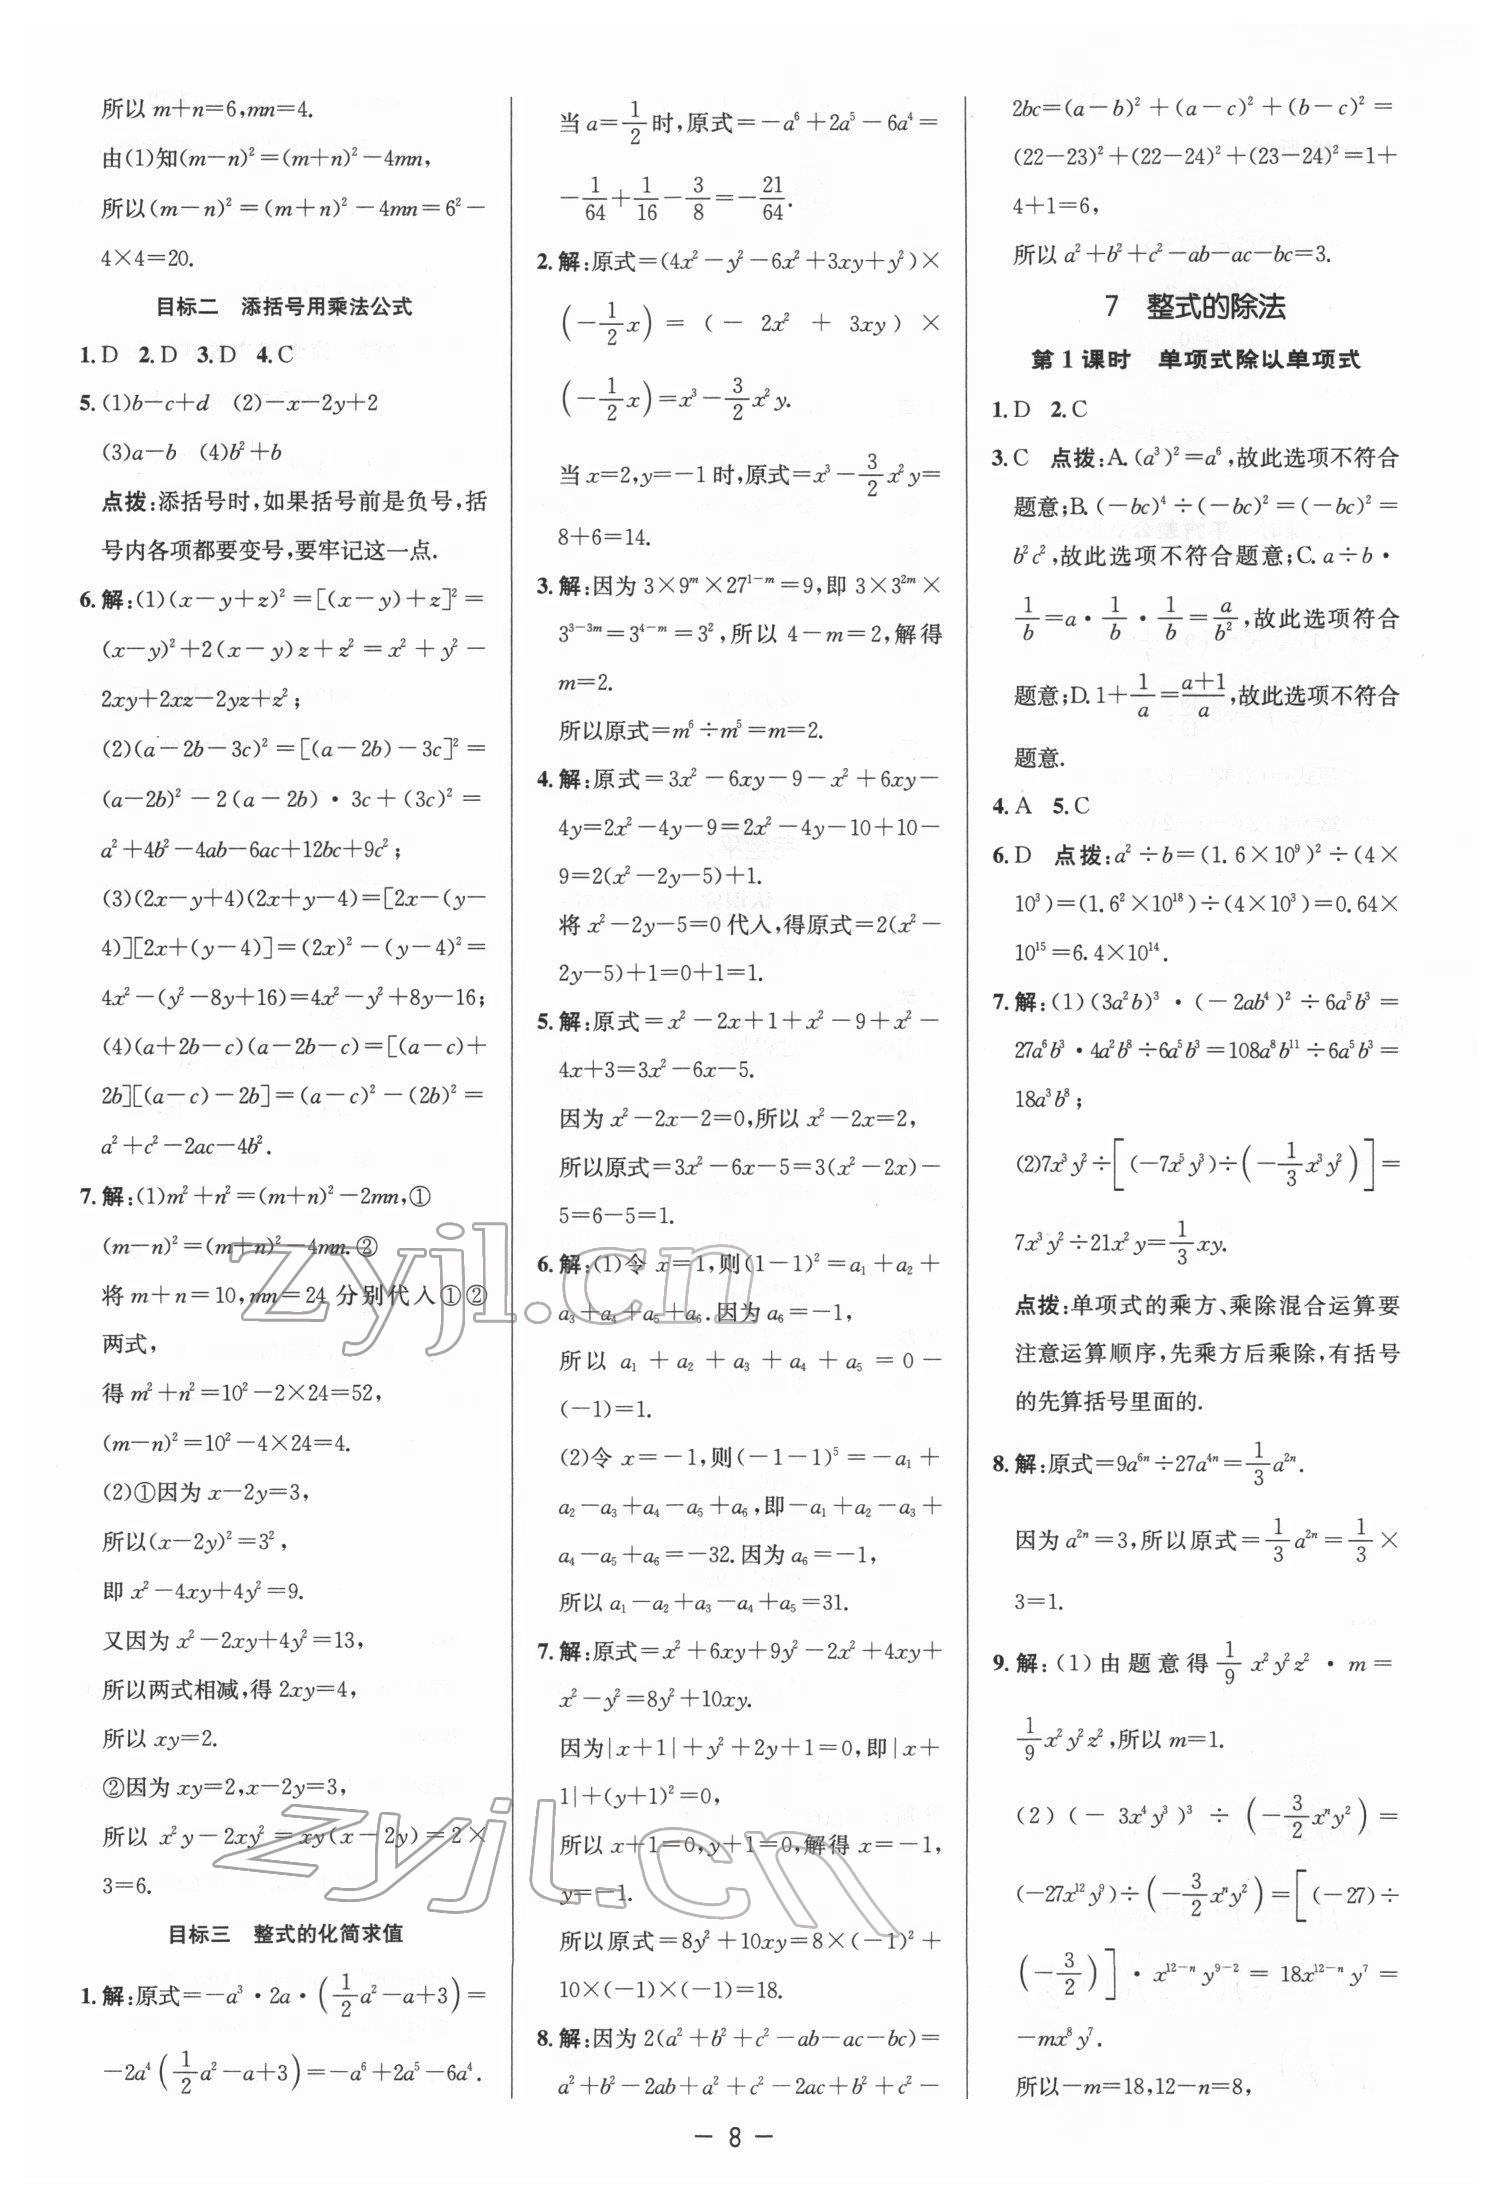 所以 m+n=6,mn=4.
由(1)知(m-n)²=(m+n)²-4mn,
所以(m-n)²=(m+n)²-4mn=6²-
4×4=20.
目标二 添括号用乘法公式
1. D 2. D 3. D 4. C
5. (1)b-c+d (2)-x-2y+2
(3)a-b (4)b²+b
点拨:添括号时,如果括号前是负号,括
号内各项都要变号,要牢记这一点.
6. 解:(1)(x-y+z)²=[(x-y)+z]²=
(x-y)²+2(x-y)z+z²=x²+y²-
2xy+2xz-2yz+z²;
(2)(a-2b-3c)²=[(a-2b)-3c]²=
(a-2b)²-2(a-2b)·3c+(3c)²=
a²+4b²-4ab-6ac+12bc+9c²;
(3)(2x-y+4)(2x+y-4)=[2x-(y-
4)][2x+(y-4)]=(2x)²-(y-4)²=
4x²-(y²-8y+16)=4x²-y²+8y-16;
(4)(a+2b-c)(a-2b-c)=[(a-c)+
2b][(a-c)-2b]=(a-c)²-(2b)²=
a²+c²-2ac-4b².
7. 解:(1)m²+n²=(m+n)²-2mn,①
(m-n)²=(m+n)²-4mn.②
将 m+n=10,mn=24 分别代入①②
两式,
得 m²+n²=10²-2×24=52,
(m-n)²=10²-4×24=4.
(2)①因为 x-2y=3,
所以(x-2y)²=3²,
即 x²-4xy+4y²=9.
又因为 x²-2xy+4y²=13,
所以两式相减,得 2xy=4,
所以 xy=2.
②因为 xy=2,x-2y=3,
所以 x²y-2xy²=xy(x-2y)=2×
3=6.
目标三 整式的化简求值
1. 解:原式=-a³·2a·(1/2a²-a+3)=
-2a⁴(1/2a²-a+3)=-a⁶+2a⁵-6a⁴.
当 a=1/2时,原式=-a⁶+2a⁵-6a⁴=
-1/64+1/16-3/8=-21/64.
2. 解:原式=(4x²-y²-6x²+3xy+y²)×
(-1/2x)=(-2x²+3xy)×
(-1/2x)=x³-3/2x²y.
当 x=2,y=-1 时,原式=x³-3/2x²y=
8+6=14.
3. 解:因为 3×9ᵐ×27¹⁻ᵐ=9,即 3×3²ᵐ×
3³⁻³ᵐ=3⁴⁻ᵐ=3²,所以 4-m=2,解得
m=2.
所以原式=m⁶÷m⁵=m=2.
4. 解:原式=3x²-6xy-9-x²+6xy-
4y=2x²-4y-9=2x²-4y-10+10-
9=2(x²-2y-5)+1.
将 x²-2y-5=0 代入,得原式=2(x²-
2y-5)+1=0+1=1.
5. 解:原式=x²-2x+1+x²-9+x²-
4x+3=3x²-6x-5.
因为 x²-2x-2=0,所以 x²-2x=2,
所以原式=3x²-6x-5=3(x²-2x)-
5=6-5=1.
6. 解:(1)令 x=1,则(1-1)²=a₁+a₂+
a₃+a₄+a₅+a₆.因为 a₆=-1,
所以 a₁+a₂+a₃+a₄+a₅=0-
(-1)=1.
(2)令 x=-1,则(-1-1)⁵=-a₁+
a₂-a₃+a₄-a₅+a₆,即-a₁+a₂-a₃+
a₄-a₅+a₆=-32.因为 a₆=-1,
所以 a₁-a₂+a₃-a₄+a₅=31.
7. 解:原式=x²+6xy+9y²-2x²+4xy+
x²-y²=8y²+10xy.
因为|x+1|+y²+2y+1=0,即|x+
1|+(y+1)²=0,
所以 x+1=0,y+1=0,解得 x=-1,
y=-1.
所以原式=8y²+10xy=8×(-1)²+
10×(-1)×(-1)=18.
8. 解:因为 2(a²+b²+c²-ab-ac-bc)=
a²+b²-2ab+a²+c²-2ac+b²+c²-
2bc=(a-b)²+(a-c)²+(b-c)²=
(22-23)²+(22-24)²+(23-24)²=1+
4+1=6,
所以 a²+b²+c²-ab-ac-bc=3.
7 整式的除法
第 1 课时 单项式除以单项式
1. D 2. C
3. C 点拨:A.(a³)²=a⁶,故此选项不符合
题意;B.(-bc)⁴÷(-bc)²=(-bc)²=
b²c²,故此选项不符合题意;C. a÷b·
1/b=a·1/b·1/b=a/b²,故此选项符合
题意;D.1+1/a=(a+1)/a,故此选项不符合
题意.
4. A 5. C
6. D 点拨:a²÷b=(1.6×10⁹)²÷(4×
10³)=(1.6²×10¹⁸)÷(4×10³)=0.64×
10¹⁵=6.4×10¹⁴.
7. 解:(1)(3a²b)³·(-2ab⁴)²÷6a⁵b³=
27a⁶b³·4a²b⁸÷6a⁵b³=108a⁸b¹¹÷6a⁵b³=
18a³b⁸;
(2)7x³y²÷[(-7x⁵y³)÷(-1/3x³y²)]=
7x³y²÷21x²y=1/3xy.
点拨:单项式的乘方、乘除混合运算要
注意运算顺序,先乘方后乘除,有括号
的先算括号里面的.
8. 解:原式=9a⁶ⁿ÷27a⁴ⁿ=1/3a²ⁿ.
因为 a²ⁿ=3,所以原式=1/3a²ⁿ=1/3×
3=1.
9. 解:(1)由题意得 1/9x²y²z²·m=
1/9x²y²z²,所以 m=1.
(2)(-3x⁴y³)³÷(-3/2xⁿy²)=
(-27x¹²y⁹)÷(-3/2xⁿy²)=[(-27)÷
(-3/2)]·x¹²⁻ⁿy⁹⁻²=18x¹²⁻ⁿy⁷=
-mx⁸y⁷.
所以-m=18,12-n=8,
— 8 —
zyjl.cn
zyjl.cn